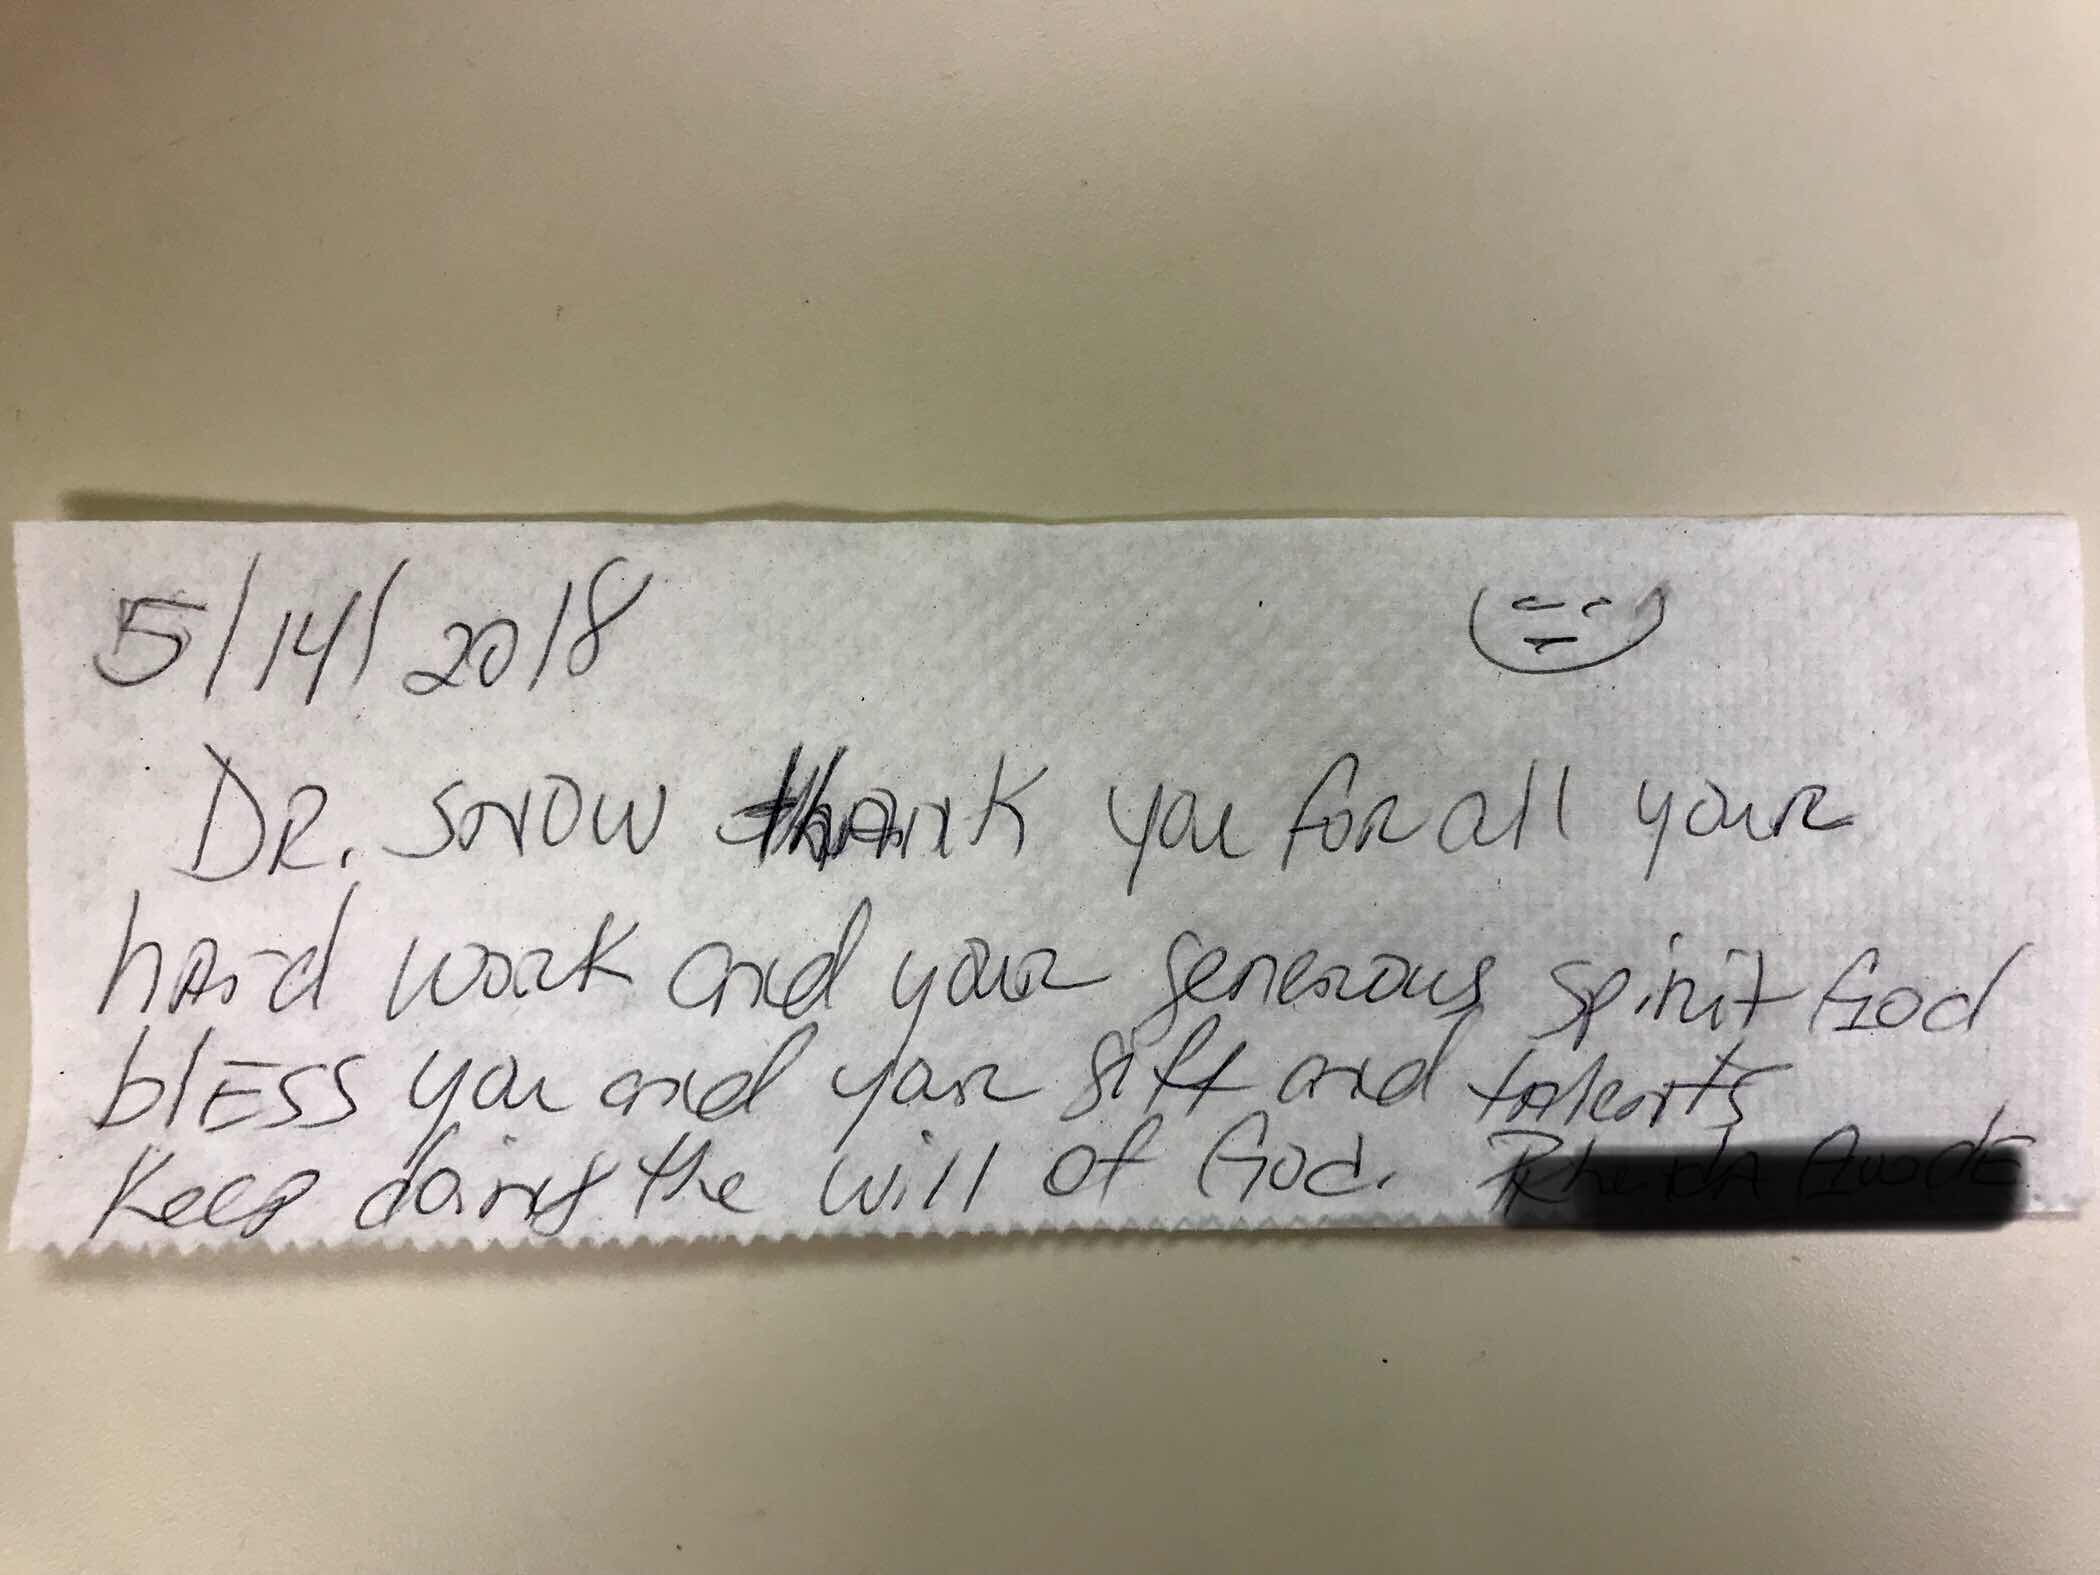 5/14/2018
DR. SNOW thANK you foR all youR
hARd woRk and youR geneRous spiRit God
blESS you and youR gift and tAlents
Keep doing the will of God.